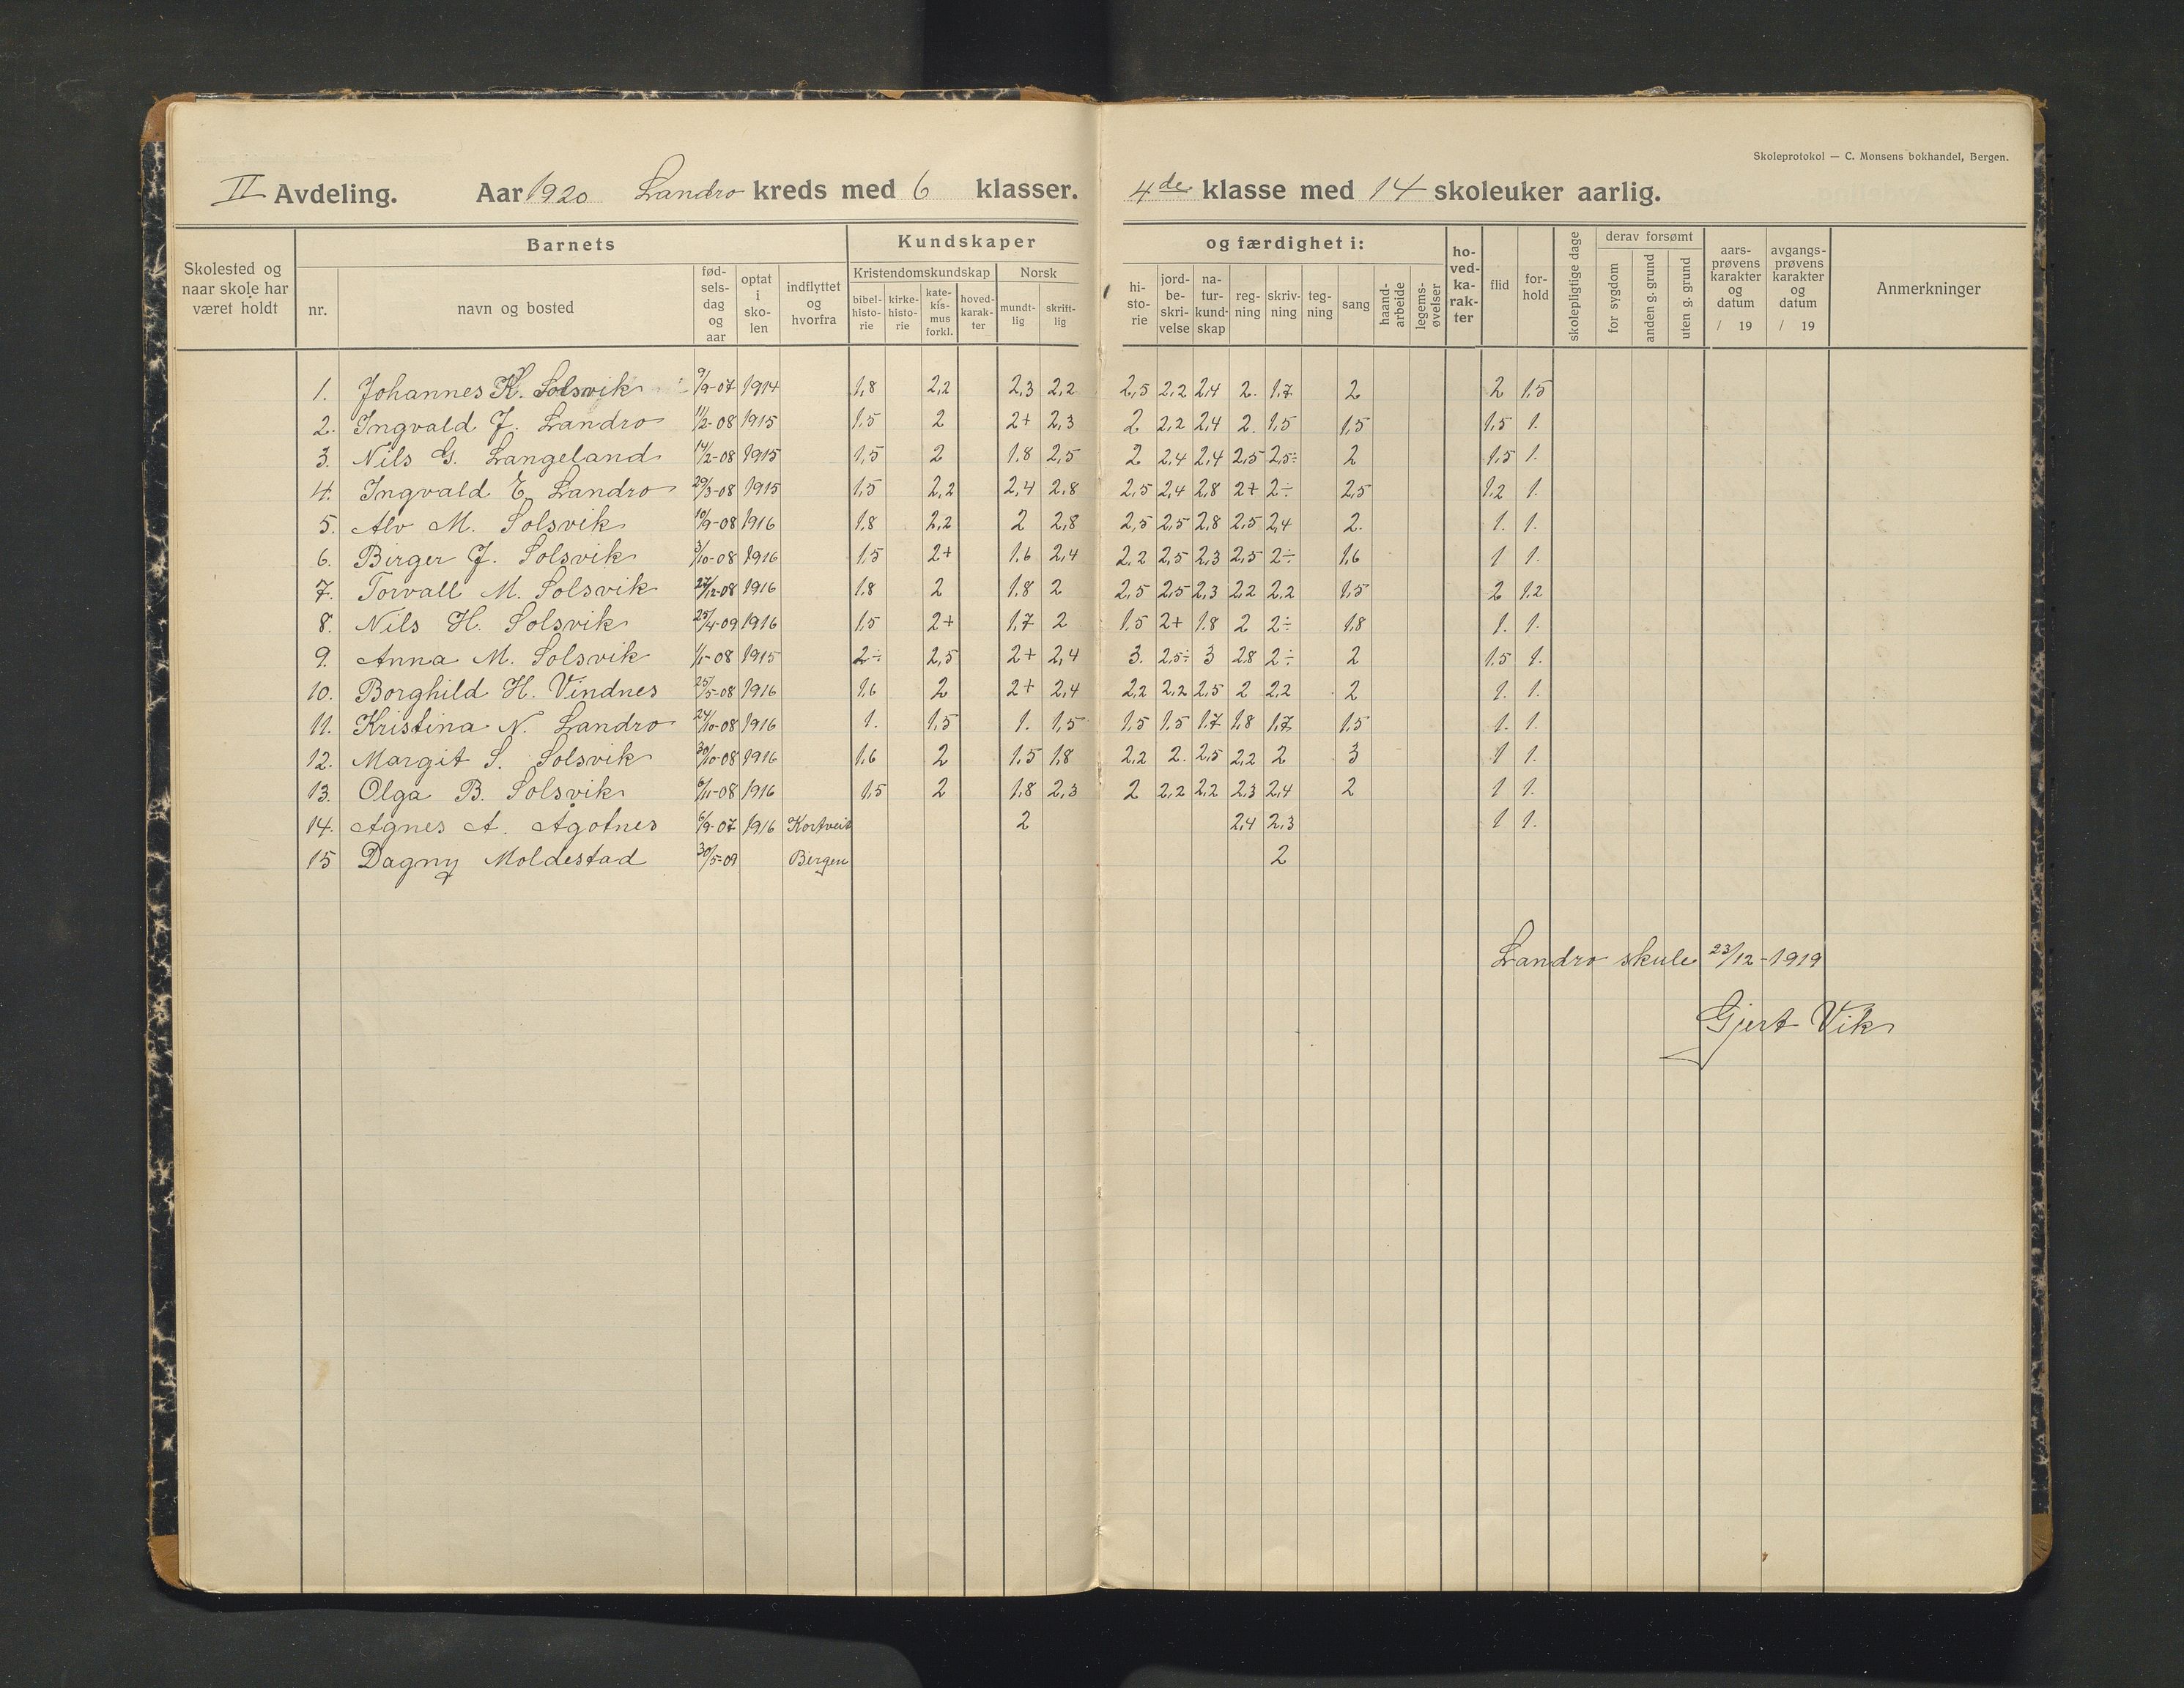 Skoleprotokol — C. Monsens bokhandel, Bergen.
II Avdeling. Aar 1920 Landro kreds med 6 klasser. 4de klasse med 14 skoleuker aarlig.
Skolested og naar skole har været holdt
Barnets
nr.
navn og bosted
fød-sels-dag og aar
optat i sko-len
indflyttet og hvorfra
Kundskaper
Kristendomskundskap
bibel-histo-rie
kirke-histo-rie
kate-kis-mus forkl.
hoved-karak-ter
Norsk
mundt-lig
skrift-lig
og færdighet i:
hi-sto-rie
jord-be-skri-velse
na-tur-kund-skap
reg-ning
skriv-ning
teg-ning
sang
haand-arbeide
legems-øvelser
ho-ved-ka-rak-ter
flid
for-hold
skolepligtige dage
derav forsømt
for sygdom
anden g. grund
uten g. grund
aars-prøvens karakter og datum / 19
avgangs-prøvens karakter og datum / 19
Anmerkninger
1. Johannes K. Solsvik 9/9-07 1914 1,8 2,2 2,3 2,2 2,5 2,2 2,4 2. 1,7 2 2 1,5
2. Ingvald J. Landro 11/2-08 1915 1,5 2 2+ 2,3 2 2,2 2,4 2. 1,5 1,5 1,5 1.
3. Nils G. Langeland 14/2-08 1915 1,5 2 1,8 2,5 2 2,4 2,4 2,5 2,5÷ 2 1,5 1.
4. Ingvald E. Landro 29/3-08 1915 1,5 2,2 2,4 2,8 2,5 2,4 2,8 2+ 2÷ 2,5 1,2 1.
5. Alv M. Solsvik 10/9-08 1916 1,8 2,2 2 2,8 2,5 2,5 2,8 2,5 2,4 2. 1. 1.
6. Birger J. Solsvik 3/10-08 1916 1,5 2+ 1,6 2,4 2,2 2,5 2,3 2,5 2÷ 1,6 1 1.
7. Torvall M. Solsvik 27/12-08 1916 1,8 2 1,8 2 2,5 2,5 2,3 2,2 2,2 1,5 2 1,2
8. Nils H. Solsvik 25/4-09 1916 1,5 2+ 1,7 2 1,5 2+ 1,8 2 2÷ 1,8 1. 1.
9. Anna M. Solsvik 1/1-08 1915 2÷ 2,5 2+ 2,4 3. 2,5÷ 3 2,8 2÷ 2 1,5 1.
10. Borghild H. Vindnes 25/5-08 1916 1,6 2 2+ 2,4 2,2 2,2 2,5 2 2,2 2 1. 1.
11. Kristina N. Landro 24/10-08 1916 1. 1,5 1. 1,5 1,5 1,5 1,7 1,8 1,7 1,5 1. 1.
12. Margit S. Solsvik 30/10-08 1916 1,6 2 1,5 1,8 2,2 2. 2,5 2,2 2 3 1 1.
13. Olga B. Solsvik 6/11-08 1916 1,5 2 1,8 2,3 2 2,2 2,2 2,3 2,4 2 1 1.
14. Agnes A. Ågotnes 6/9-07 1916 Kortveit 2 2,4 2,3 1 1.
15 Dagny Moldestad 30/5-09 Bergen 2
Landro skule 23/12-1919
Gjert Vik